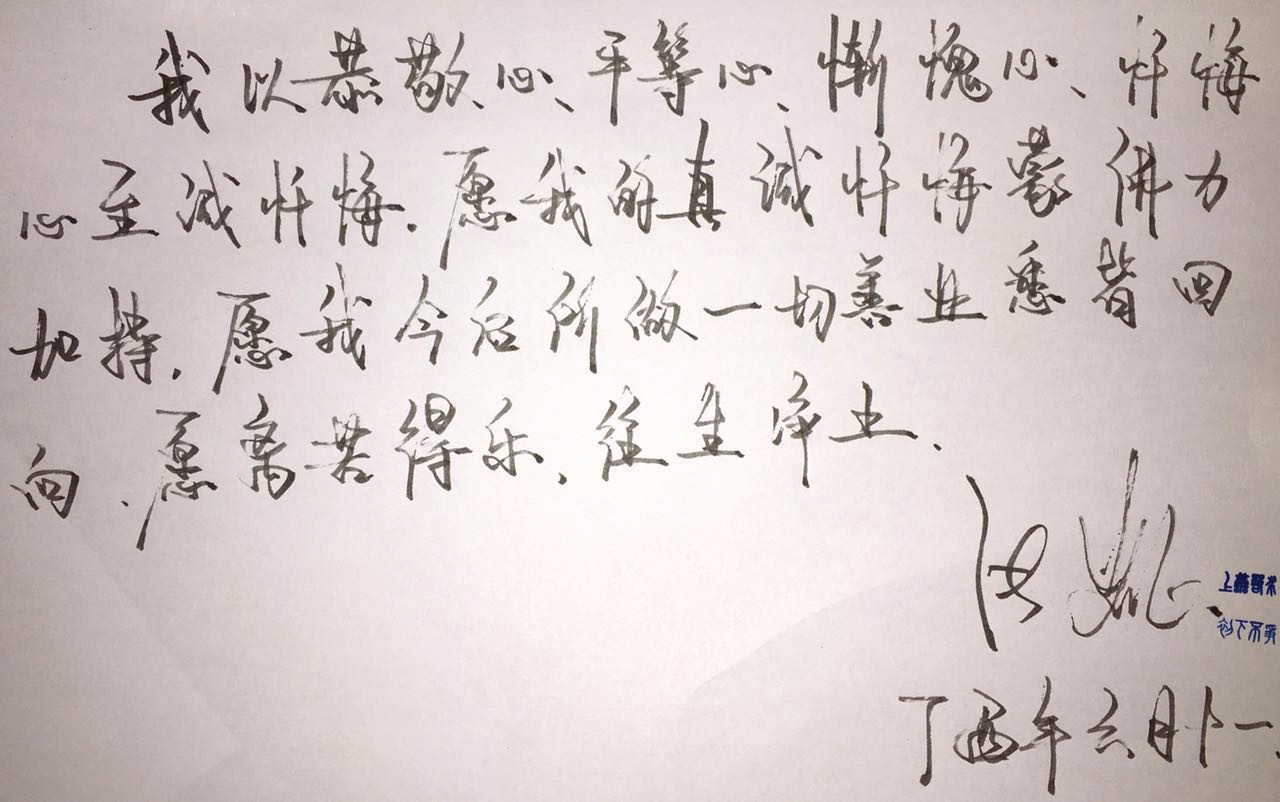 我以恭敬心、平等心、惭愧心、忏悔
心至诚忏悔.愿我的真诚忏悔蒙佛力
加持.愿我今后所做一切善业悉皆回
向.愿离苦得乐、往生净土、
丁酉年六月十一、